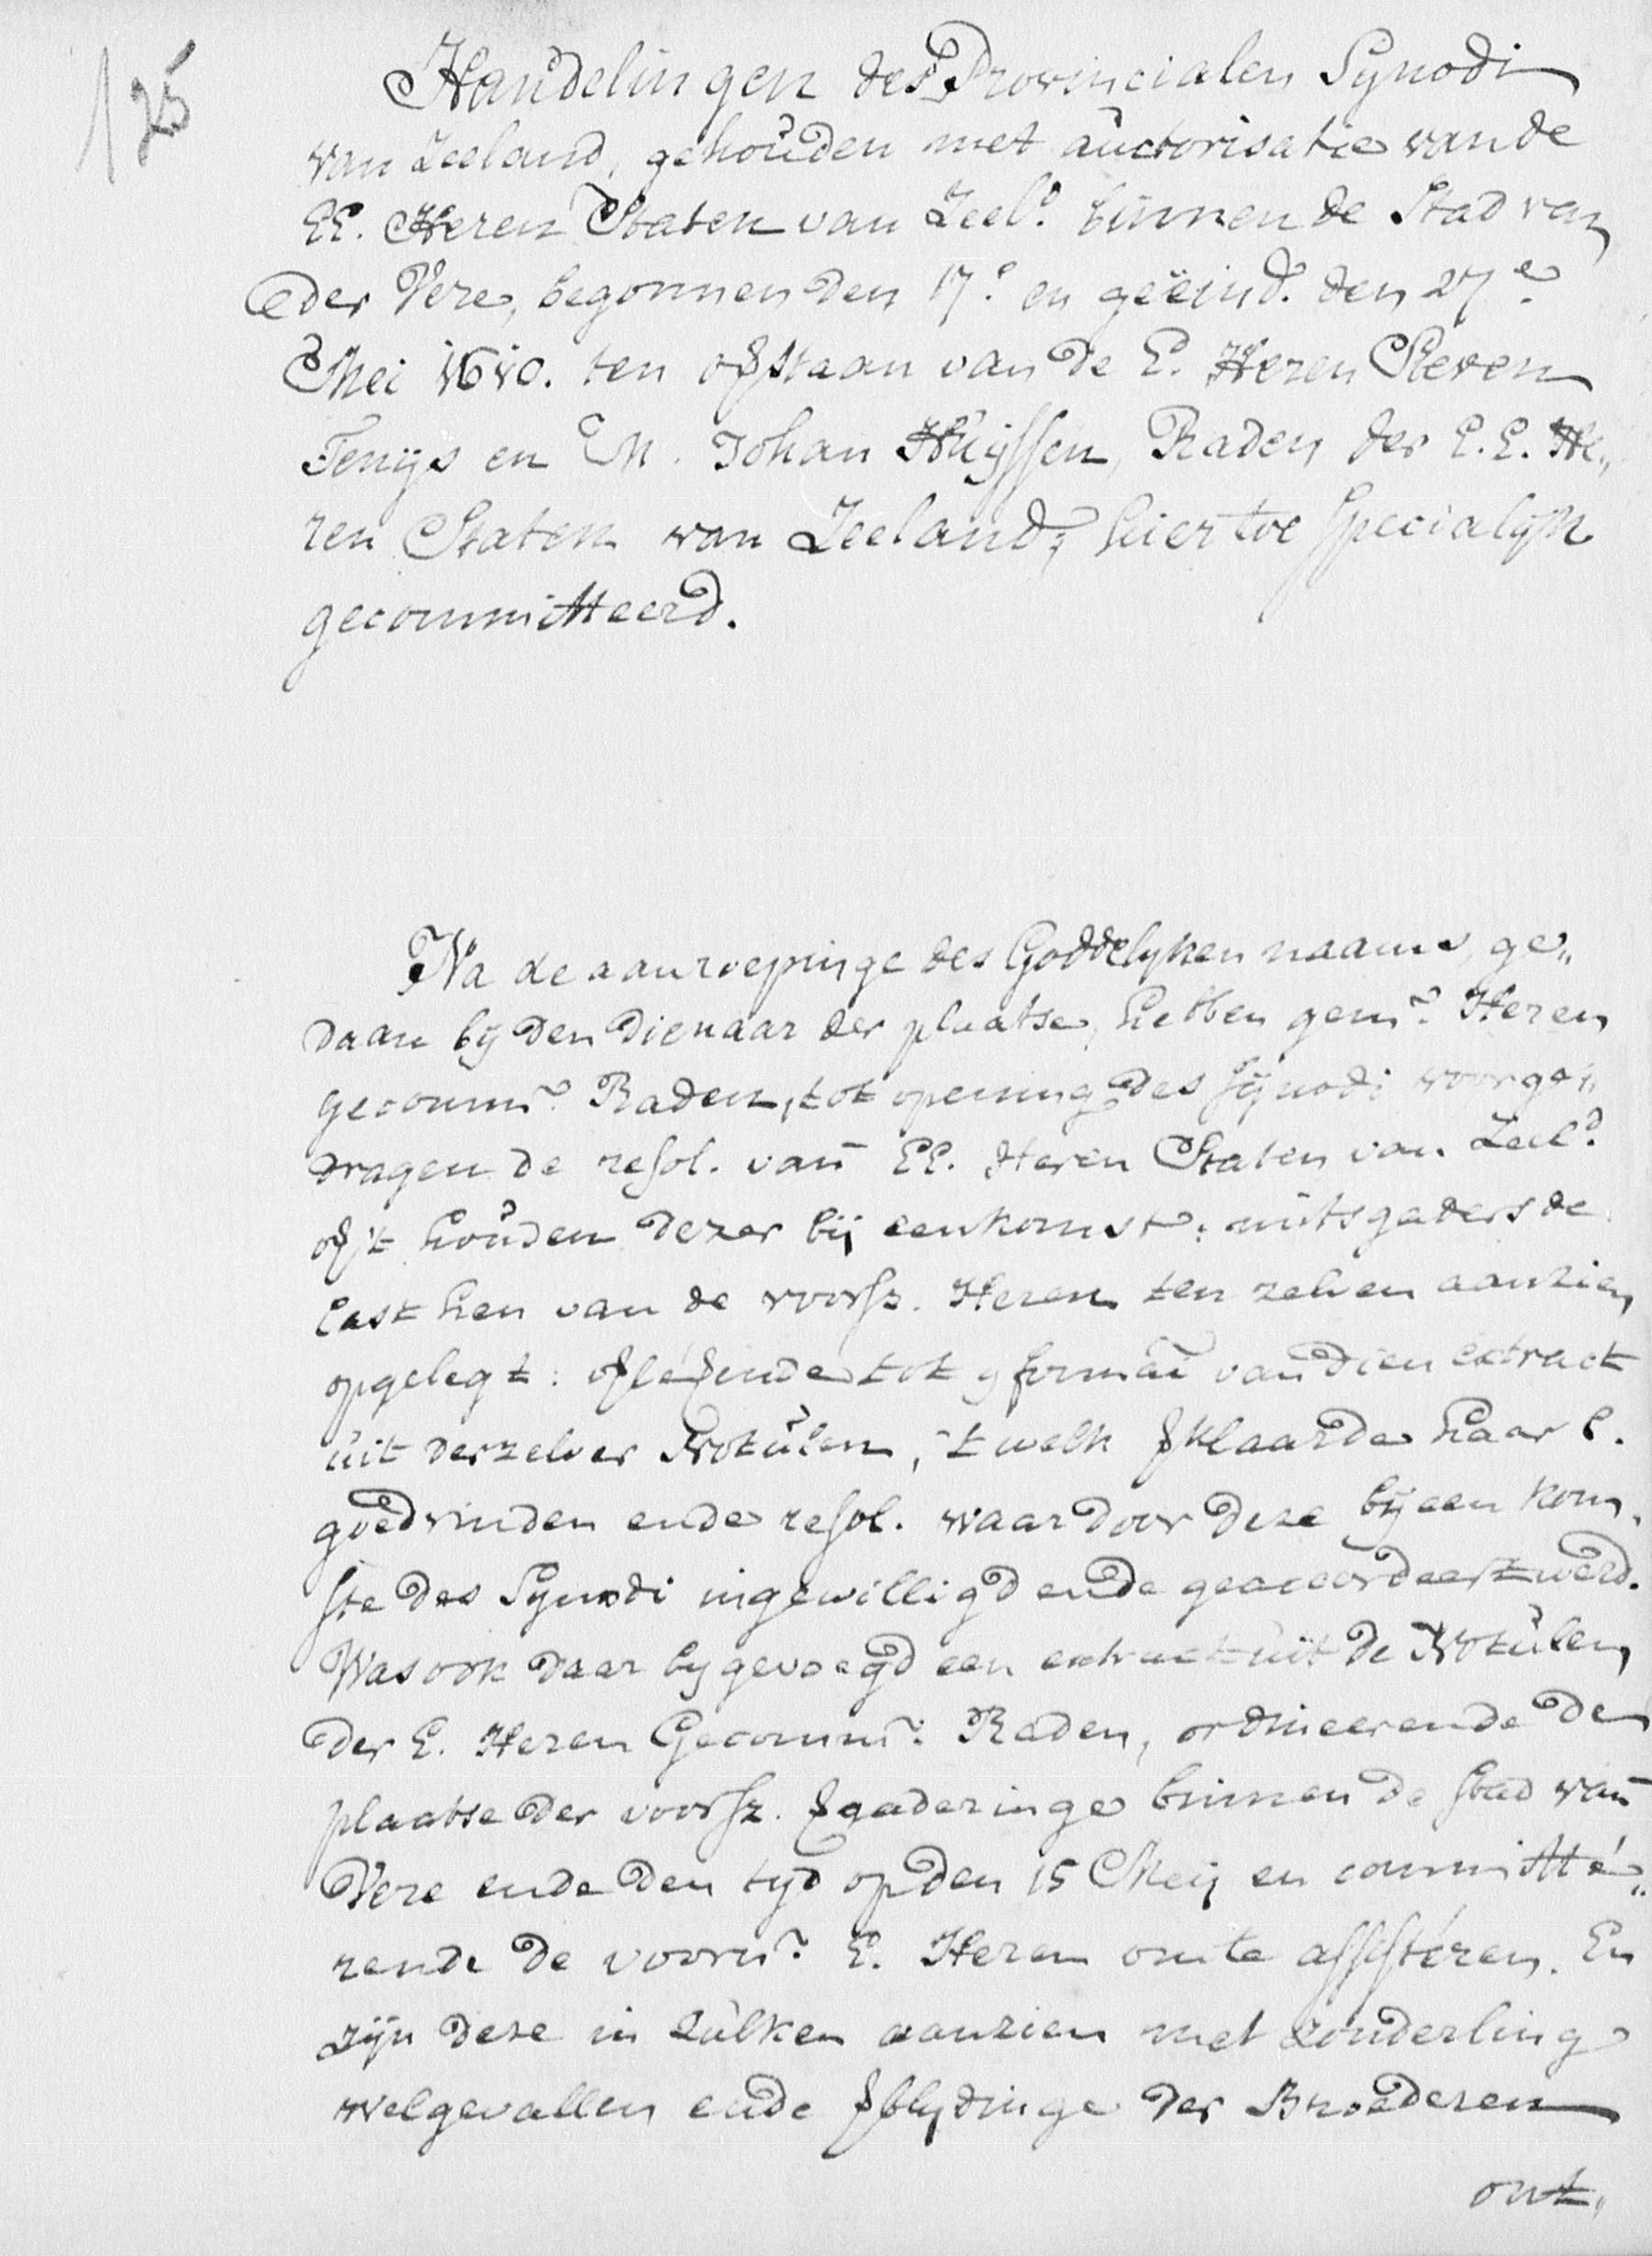 125
Handelingen des Provincialen Synodi
van Zeeland, gehouden met auctorisatie van de
EE. Heren Staten van Zeel.d binnen de Stad van
der Vere, begonnen den 17.e en geëind. den 27.e
Mei 1610. ten ofstaan van de E. Heren Steven
Tenijs en M. Johan Huijssen, Raden der E.E. He„
ren Staten van Zeeland, hier toe specialijk
gecommitteerd.
Na de aanroepinge des Goddelyken naams, ge„
daan bij den Dienaar der plaatse, hebben gem.e Heren
gecomm.e Raden, tot opening des Synodi voorge„
dragen de resol. van EE. Heren Staten van Zeel.d
op 't houden dezer bij eenkomst: mitsgaders de
last hen van de voorsz. Heren ten zelven aanzien
opgelegt: tot van dien extract
uit derzelver Notulen, 't welk klaarde haar E.
goedvinden ende resol. waar door deze bij een kom„
ste des Synodi ingewilligd ende geaccordeert werd.
Was ook daar bygevoegd een extract uit de Notulen
der E. Heren Gecomm.e Raden, ordineerende den
plaatse der voorsz. gaderinge binnen de stad van
Vere ende den tyd op den 15 Meij en committé„
rende de voorn.e E. Heren om te assistéren. En
zijn deze in zulken aanzien met zonderling
welgevallen ende blydinge der Broederen
ont„